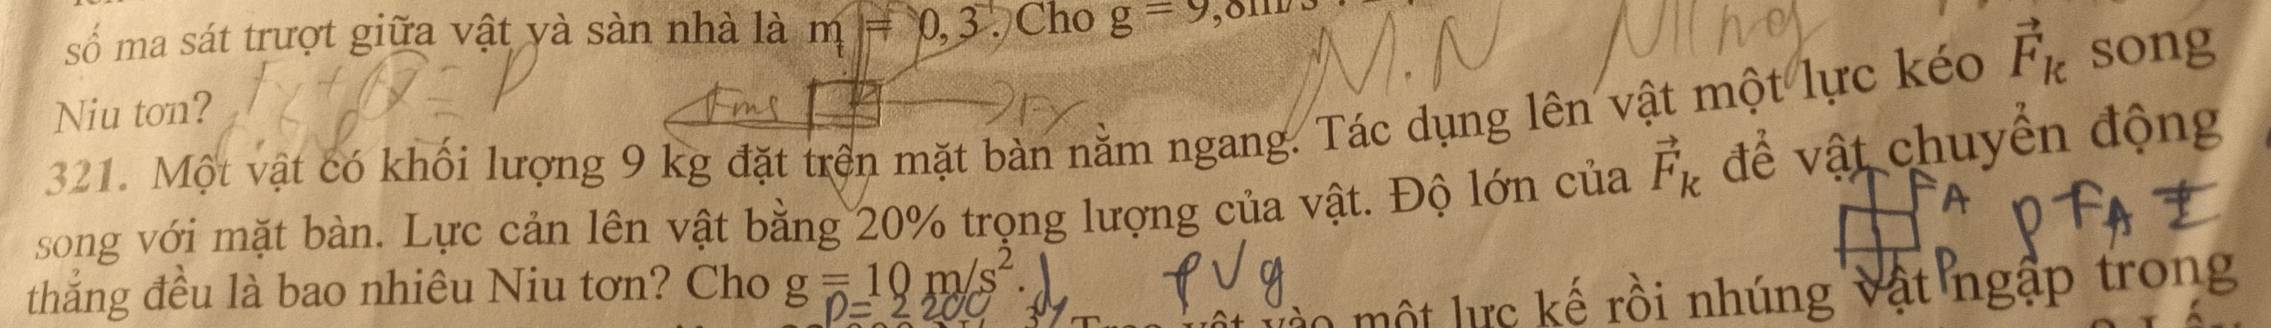 số ma sát trượt giữa vật và sàn nhà là m = 0,3. Cho g = 9,8m/s
Niu tơn?
Fms
321. Một vật có khối lượng 9 kg đặt trên mặt bàn nằm ngang. Tác dụng lên vật một lực kéo F⃗k song
song với mặt bàn. Lực cản lên vật bằng 20% trọng lượng của vật. Độ lớn của F⃗k để vật chuyển động
FA
P FA
thẳng đều là bao nhiêu Niu tơn? Cho g = 10 m/s².
P
vật vào một lực kế rồi nhúng vật ngập trong